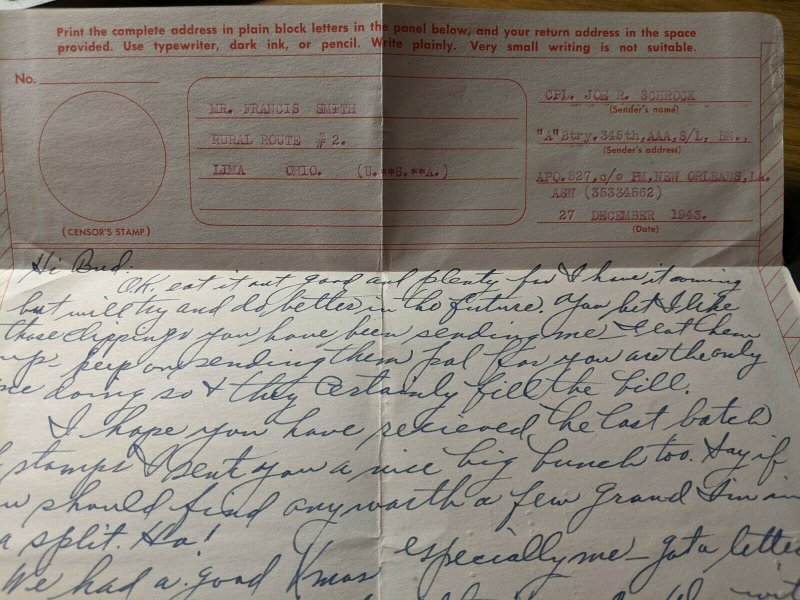 Print the complete address in plain block letters in the panel below, and your return address in the space
provided. Use typewriter, dark ink, or pencil. Write plainly. Very small writing is not suitable.
No.
(CENSOR'S STAMP)
MR. FRANCIS SMITH
RURAL ROUTE # 2.
LIMA OHIO. (U.**S.**A.)
CPL. JOE R. SCHROCK
(Sender's name)
"A"Btry.345th,AAA,S/L, BN.,
(Sender's address)
APO.827,c/o PM,NEW ORLEANS,LA.
ASN (35334562)
27 DECEMBER 1943.
(Date)
Hi Bud.
OK, eat it out good and plenty for I have it coming
but will try and do better in the future. You bet I like
those clippings you have been sending me I eat them
up- keep on sending them pal for you are the only
one doing so & they certainly fill the bill.
I hope you have recieved the last batch
stamps I sent you a nice big bunch too. Say if
should find any worth a few grand I'm in
a split. Ha!
We had a good Xmas especially me - got a letter